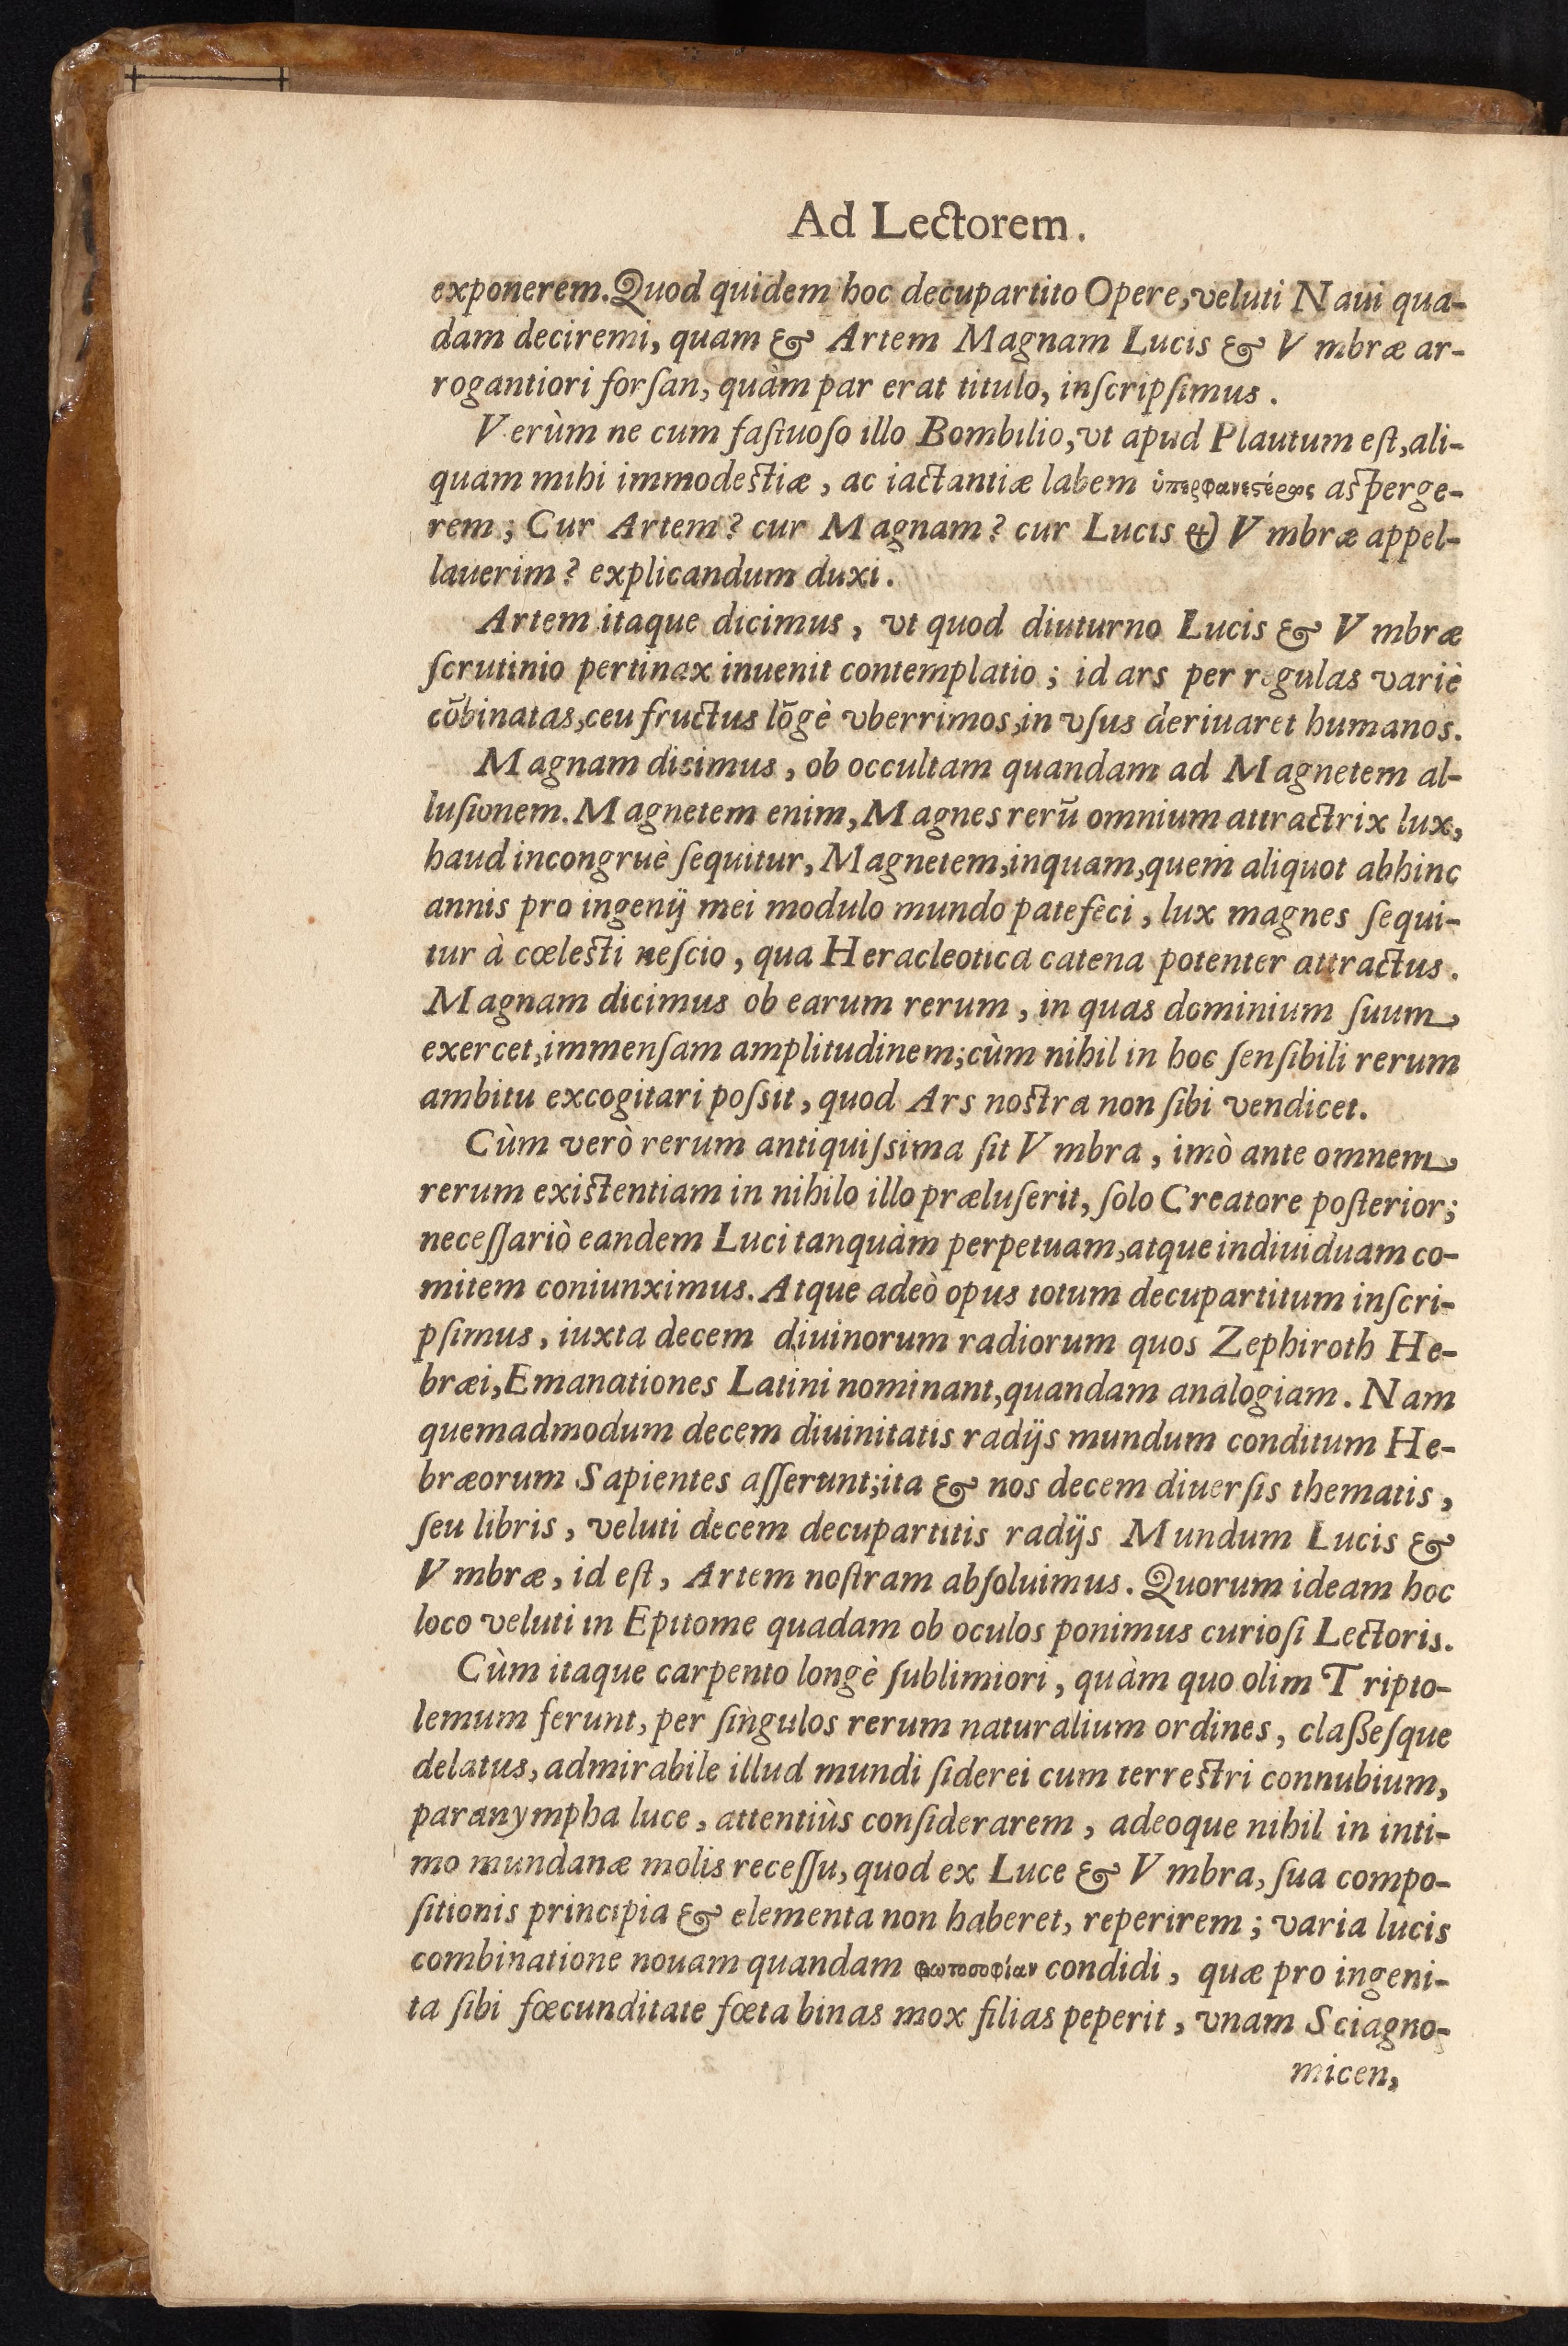 Ad Lectorem.
exponerem. Quod quidem hoc decupartito Opere, veluti Naui qua-
dam deciremi, quam & Artem Magnam Lucis & Vmbræ ar-
rogantiori forſan, quàm par erat titulo, inſcripſimus.
Verùm ne cum faſtuoſo illo Bombilio, vt apud Plautum eſt, ali-
quam mihi immodeſtiæ, ac iactantiæ labem ὑπερφανεστέρως aſperge-
rem; Cur Artem? cur Magnam? cur Lucis & Vmbræ appel-
lauerim? explicandum duxi.
Artem itaque dicimus, vt quod diuturno Lucis & Vmbræ
ſcrutinio pertinax inuenit contemplatio; id ars per regulas variè
cõbinatas, ceu fructus lõgè vberrimos, in vſus deriuaret humanos.
Magnam dicimus, ob occultam quandam ad Magnetem al-
luſionem. Magnetem enim, Magnes rerũ omnium attractrix lux,
haud incongruè ſequitur, Magnetem, inquam, quem aliquot abhinc
annis pro ingenij mei modulo mundo patefeci, lux magnes ſequi-
tur à cœleſti neſcio, qua Heracleotica catena potenter attractus.
Magnam dicimus ob earum rerum, in quas dominium ſuum,
exercet, immenſam amplitudinem; cùm nihil in hoc ſenſibili rerum
ambitu excogitari poſsit, quod Ars noſtra non ſibi vendicet.
Cùm verò rerum antiquiſsima ſit Vmbra, imò ante omnem,
rerum exiſtentiam in nihilo illo præluſerit, ſolo Creatore poſterior;
neceſſariò eandem Luci tanquàm perpetuam, atque indiuiduam co-
mitem coniunximus. Atque adeò opus totum decupartitum inſcri-
pſimus, iuxta decem diuinorum radiorum quos Zephiroth He-
bræi, Emanationes Latini nominant, quandam analogiam. Nam
quemadmodum decem diuinitatis radijs mundum conditum He-
bræorum Sapientes aſſerunt; ita & nos decem diuerſis thematis,
ſeu libris, veluti decem decupartitis radijs Mundum Lucis &
Vmbræ, id eſt, Artem noſtram abſoluimus. Quorum ideam hoc
loco veluti in Epitome quadam ob oculos ponimus curioſi Lectoris.
Cùm itaque carpento longè ſublimiori, quàm quo olim Tripto-
lemum ferunt, per ſingulos rerum naturalium ordines, claßeſque
delatus, admirabile illud mundi ſiderei cum terreſtri connubium,
paranympha luce, attentiùs conſiderarem, adeoque nihil in inti-
mo mundanæ molis receſſu, quod ex Luce & Vmbra, ſua compo-
ſitionis principia & elementa non haberet, reperirem; varia lucis
combinatione nouam quandam φωτοσοφίαν condidi, quæ pro ingeni-
ta ſibi fœcunditate fœta binas mox filias peperit, vnam Sciagno-
micen,